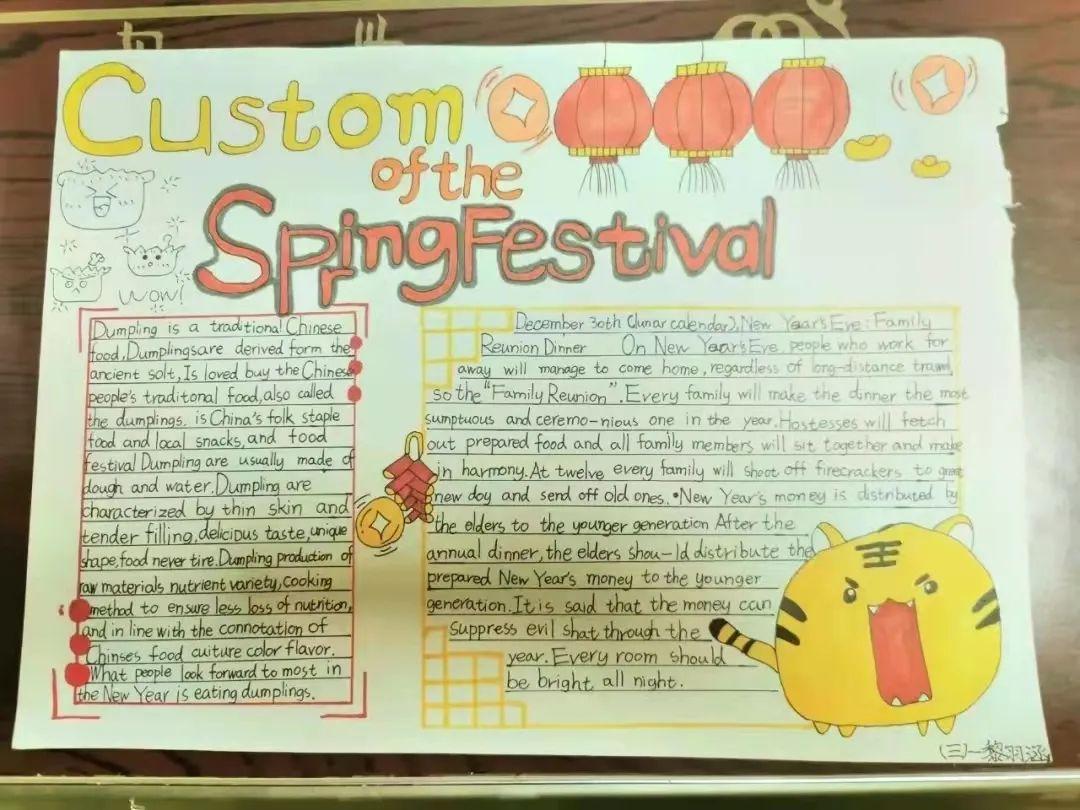 Custom
of the
Spring Festival
WOW!
Dumpling is a traditional Chinese
food,Dumplingsare derived form the
ancient solt,Is loved buy the Chinese
people's traditonal food,also called
the dumplings. is China's folk staple
food and local snacks,and food
festival Dumpling are usually made of
dough and water.Dumpling are
characterized by thin skin and
tender filling,delicious taste,unique
shape,food never tire.Dumpling production of
raw materials nutrient variety,cooking
method to ensure less loss of nutrition,
and in line with the connotation of
Chinses food cuiture color flavor.
What people look forward to most in
the New Year is eating dumplings.
December 30th (lunar calendar),New Year's Eve:Family
Reunion Dinner On New Year's Eve, people who work for
away will manage to come home,regardless of long-distance
so the "Family Reunion".Every family will make the dinner the most
sumptuous and ceremo-nious one in the year.Hostesses will fetch
out prepared food and all family members will sit together and make
in harmony.At twelve every family will shoot off firecrackers to
new doy and send off old ones.•New Year's money is distributed by
the elders to the younger generation After the
annual dinner,the elders shou-ld distribute the
prepared New Year's money to the younger
generation.It is said that the money can
suppress evil shat through the
year.Every room should
be bright all night.
(三)一黎羽涵